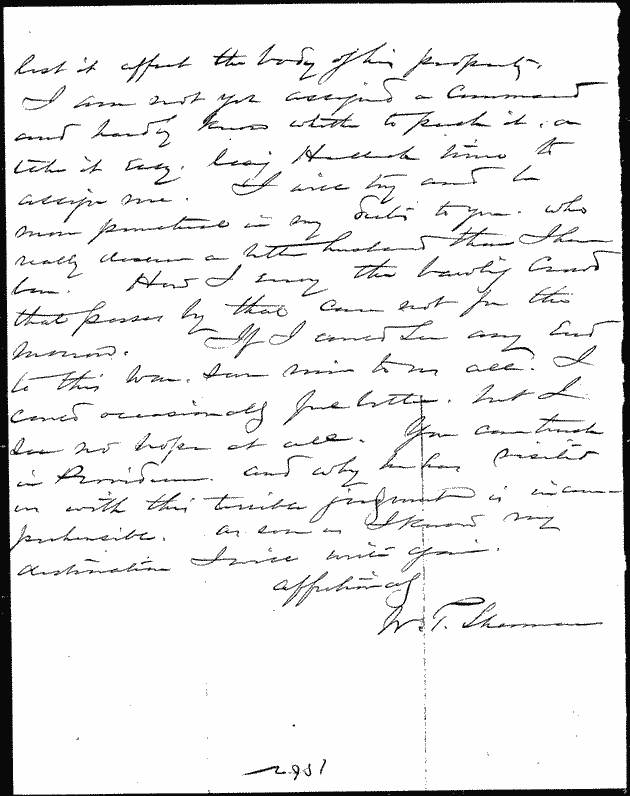 lest it affect the body of his property.
I am not yet assigned a Command
and hardly know whether to push it, or
take it easy. leaving Halleck time to
assign me. I will try and be
more punctual in my debts to you. who
really deserve a better husband than I have
been. How I envy the bawling Crowd
that passes by that care not for the
morrow. If I could see any End
to this War. save ruin to us all. I
could occasionally feel better. but I
see no hope at all. You can trust
in Providence. and why he has visited
us with this terrible judgment is incom-
prehensible. as soon as I know my
destination I will write again.
affectionately
W. T. Sherman